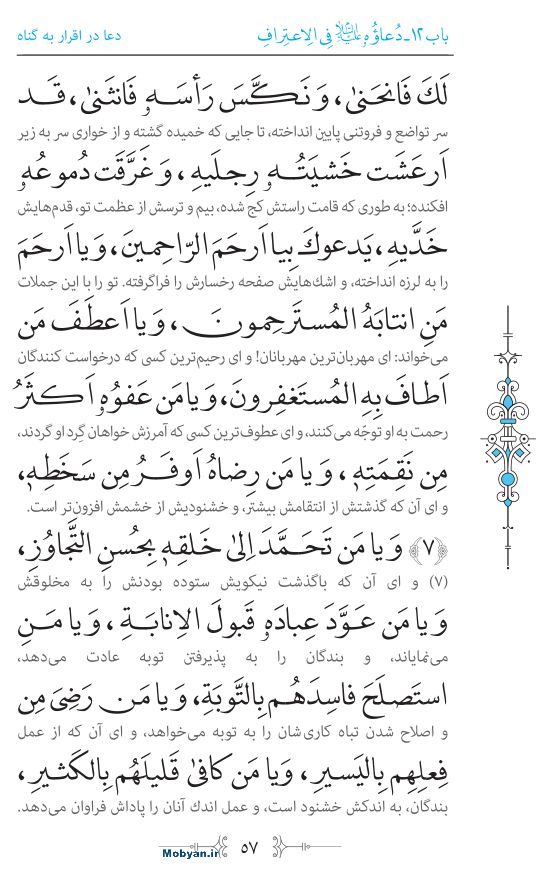 باب ١٢ـ دُعاؤُهُ علیه‌السلام فِی الِاعتِرافِ
دعا در اقرار به گناه
لَكَ فَانحَنىٰ، وَ نَكَّسَ رَأسَهُ فَانثَنىٰ، قَد
سر تواضع و فروتنی پایین انداخته، تا جایی که خمیده گشته و از خواری سر به زیر
اَرعَشَت خَشيَتُهُ رِجلَيهِ، وَ غَرَّقَت دُموعُهُ
افکنده؛ به طوری که قامت راستش کج شده، بیم و ترسش از عظمت تو، قدم‌هایش
خَدَّيهِ، يَدعوكَ بِيا اَرحَمَ الرّاحِمينَ، وَ يا اَرحَمَ
را به لرزه انداخته، و اشك‌هایش صفحه رخسارش را فراگرفته. تو را با این جملات
مَنِ انتابَهُ المُستَرحِمونَ، وَ يا اَعطَفَ مَن
می‌خواند: ای مهربان‌ترین مهربانان! و ای رحیم‌ترین کسی که درخواست کنندگان
اَطافَ بِهِ المُستَغفِرونَ، وَ يا مَن عَفوُهُ اَكثَرُ
رحمت به او توجّه می‌کنند، و ای عطوف‌ترین کسی که آمرزش خواهان گِرد او گردند،
مِن نَقِمَتِهِ، وَ يا مَن رِضاهُ اَوفَرُ مِن سَخَطِهِ،
و ای آن که گذشتش از انتقامش بیشتر، و خشنودیش از خشمش افزون‌تر است.
﴿٧﴾ وَ يا مَن تَحَمَّدَ اِلىٰ خَلقِهِ بِحُسنِ التَّجاوُزِ،
(٧) و ای آن که باگذشت نیکویش ستوده بودنش را به مخلوقش
وَ يا مَن عَوَّدَ عِبادَهُ قَبولَ الاِنابَةِ، وَ يا مَنِ
می‌نمایاند، و بندگان را به پذیرفتن توبه عادت می‌دهد،
استَصلَحَ فاسِدَهُم بِالتَّوبَةِ، وَ يا مَن رَضِىَ مِن
و اصلاح شدن تباه کاری‌شان را به توبه می‌خواهد، و ای آن که از عمل
فِعلِهِم بِاليَسيرِ، وَ يا مَن كافىٰ قَليلَهُم بِالكَثيرِ،
بندگان، به اندکش خشنود است، و عمل اندك آنان را پاداش فراوان می‌دهد.
٥٧
Mobyan.ir